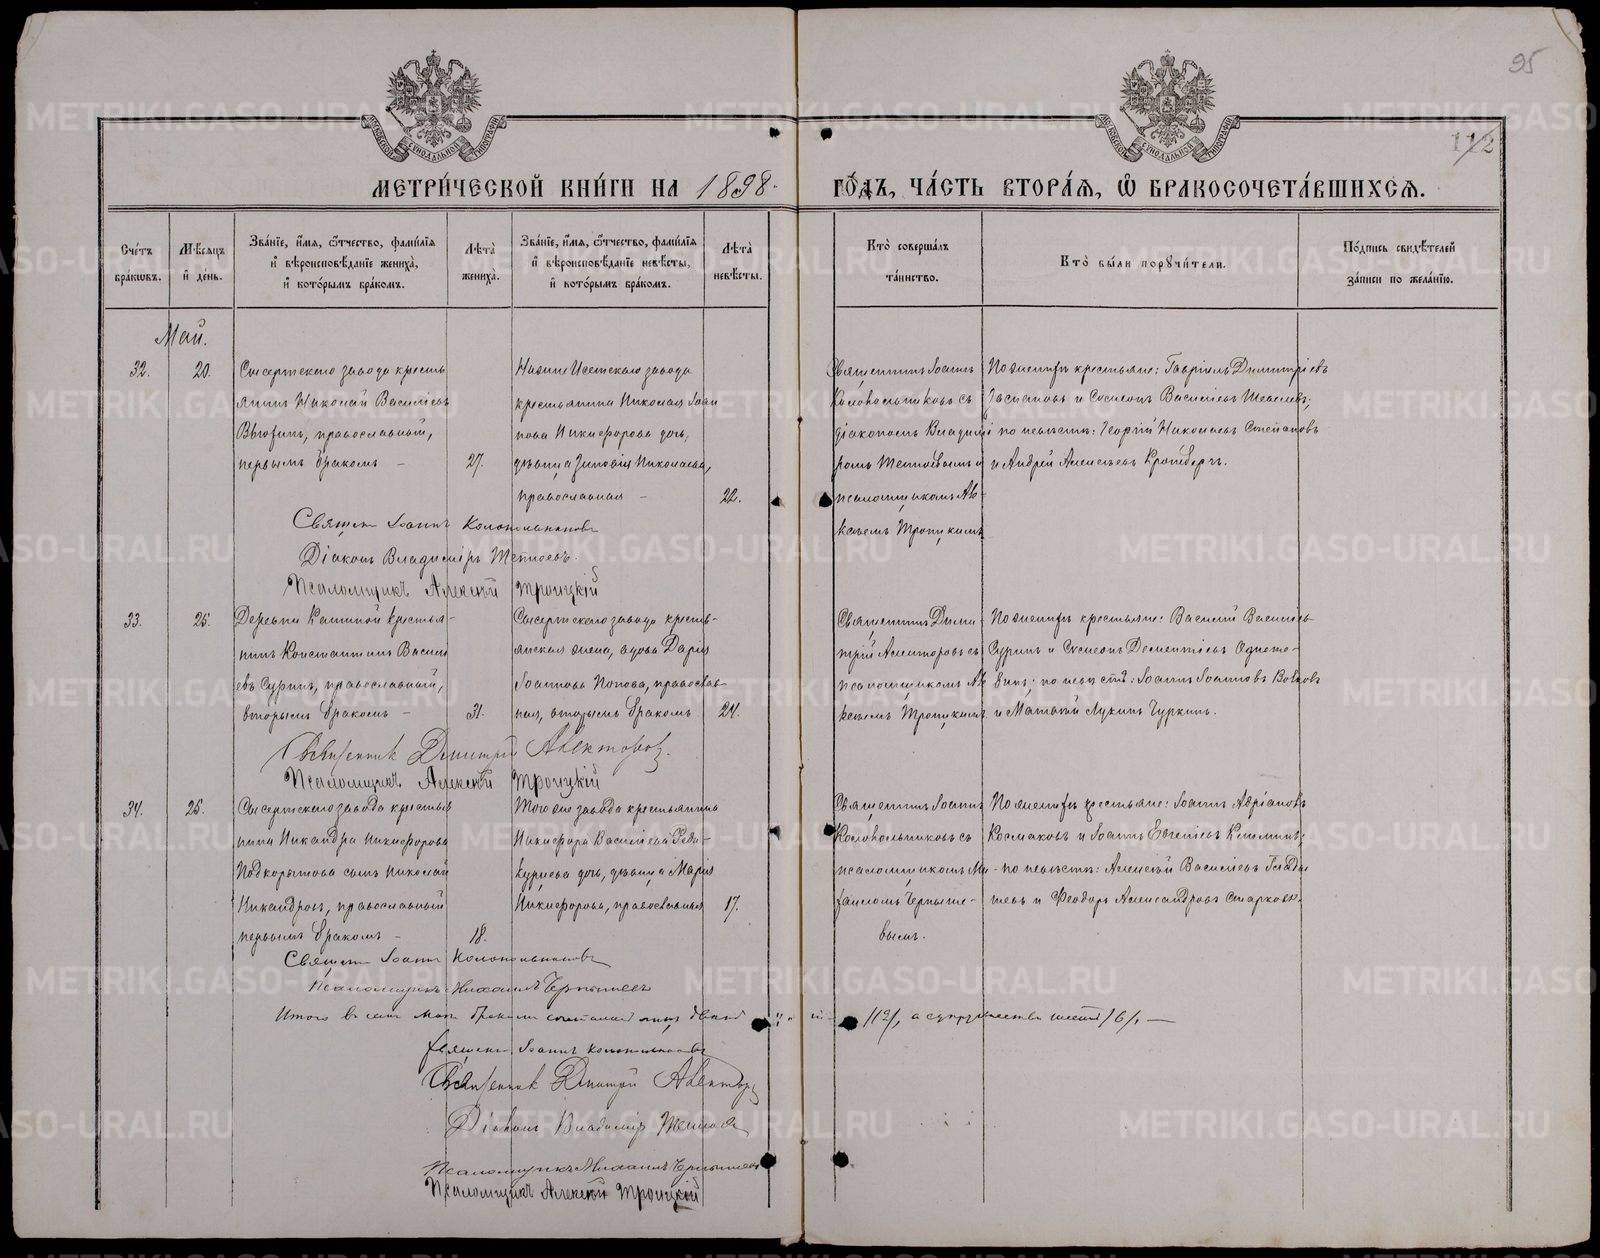 95
112
МЕТРИ́ЧЕСКОЙ КНИ́ГИ НА 1898. ГО́ДЪ, ЧА́СТЬ ВТОРА́Я, Ѡ БРАКОСОЧЕТА́ВШИХСЯ.
Сче́тъ бра́ковъ.
Мѣ́сяцъ и де́нь.
Зва́нїе, и́мя, ѻ́тчество, фами́лїя и вѣроисповѣ́данїе жениха̀, и кото́рымъ бра́комъ.
Лѣ́та жениха̀.
Зва́нїе, и́мя, ѻ́тчество, фами́лїя и вѣроисповѣ́данїе невѣ́сты, и кото́рымъ бра́комъ.
Лѣ́та невѣ́сты.
Кто̀ соверша́лъ та́инство.
Кто̀ бы́ли порꙋчи́тели.
По́дпись свидѣ́телей за́писи по жела́нїю.
Май.
32.
20.
Сысертскаго завода кресть
янинъ Николай Василіевъ
православный,
первымъ бракомъ –
27.
Исетскаго завода
крестьянина Николая Іоан
нова Никифорова дочь,
дѣвица Зиновія Николаева,
православная –
22.
Священникъ Іоаннъ
Колокольниковъ съ
діакономъ Владимі
ромъ и
псаломщикомъ Ал-
ексѣемъ Троицкимъ
По женихѣ крестьяне: Гавріилъ Димитріевъ
и Василіевъ
по невѣстѣ: Георгій Николаевъ Степановъ
и Андрей Алексѣевъ Кронбергъ.
Священ Іоаннъ Колокольниковъ
Діаконъ Владиміръ
Псаломщикъ Алексѣй Троицкій
33.
25.
Деревни Кашиной крестья-
нинъ Константинъ Васили
евъ Суринъ, православный,
вторымъ бракомъ –
31.
Сысертскаго завода кресть-
янская жена, вдова Дарія
Іоаннова Попова, православ-
ная, вторымъ бракомъ
24.
Священникъ Дими-
трій съ
псаломщикомъ Ал
ексѣемъ Троицкимъ
По женихѣ крестьяне: Василій Василіевъ
Суринъ и Симеонъ Дементіевъ
по невѣстѣ: Іоаннъ Іоанновъ Волковъ
и Матвѣй Лукинъ Чуркинъ.
Священник Дмитрій
Псаломщикъ Алексѣй Троицкій
34.
25.
Сысертскаго завода крестья
нина Никандра Никифорова
Подкорытова сынъ Николай
Никандровъ, православный
первымъ бракомъ –
18.
Того же завода крестьянина
Никифора Василіева
дочь, дѣвица Марія
Никифорова, православная
17.
Священникъ Іоаннъ
Колокольниковъ съ
псаломщикомъ Ми-
хаиломъ Черныше-
вымъ.
По женихѣ крестьяне: Іоаннъ Адріановъ
Космаковъ и Іоаннъ Евгеніевъ
по невѣстѣ: Алексѣй Василіевъ Глады
шевъ и Феодоръ Александровъ Старковъ.
Священ Іоаннъ Колокольниковъ
Псаломщикъ Михаилъ Чернышевъ
Итого въ маѣ бракомъ сочеталось лицъ /12/, а супружествъ шесть /6/. —
Священ. Іоаннъ Колокольниковъ
Священник Дмитрій
Діаконъ Владиміръ
Псаломщикъ Михаилъ Чернышевъ
Псаломщикъ Алексѣй Троицкій
METRIKI.GASO-URAL.RU